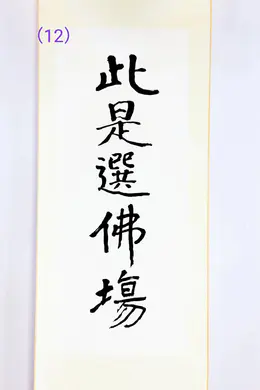 (12)
此是選佛場